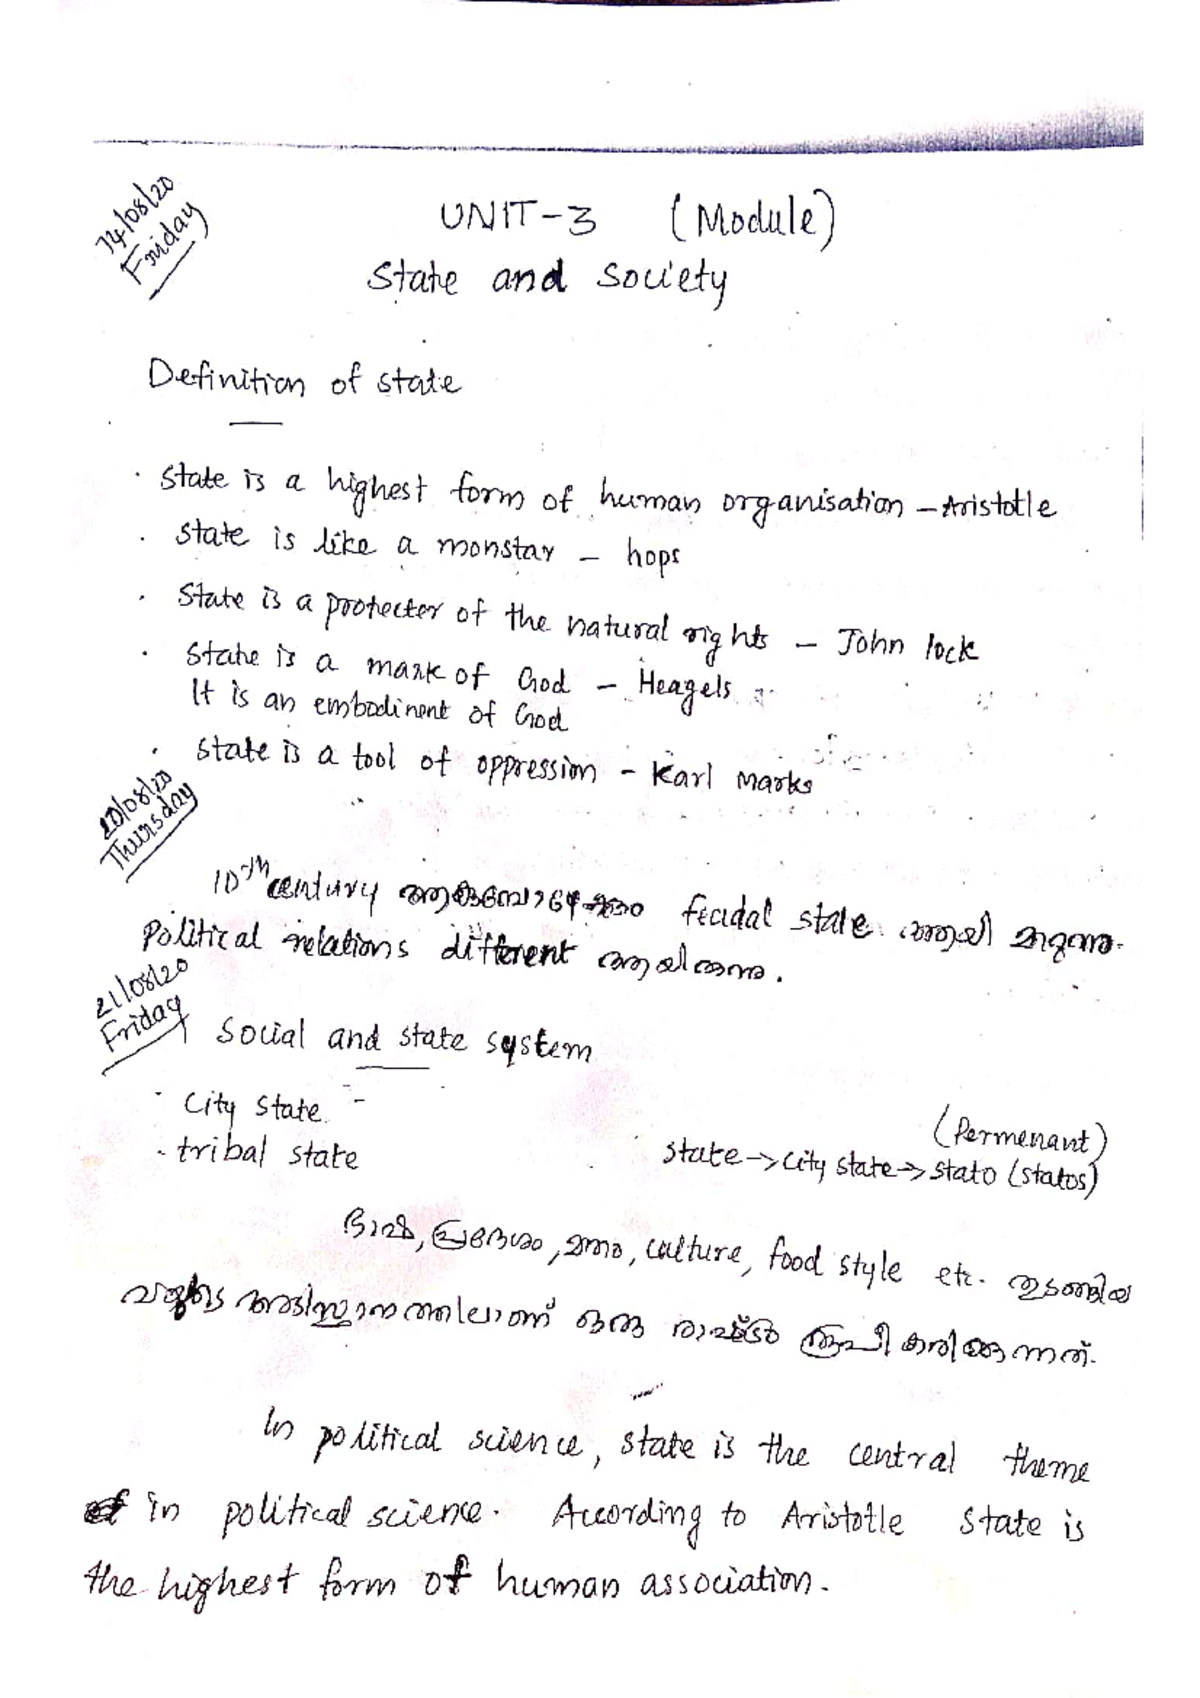 14/08/20
Friday
UNIT-3 (Module)
State and Society
Definition of state
· State is a highest form of human organisation - Aristotle
· State is like a monstar - hops
· State is a protecter of the natural rights - John lock
· State is a mark of God - Heagels
It is an embodinent of God
· State is a tool of oppression - Karl Marks
20/08/20
Thursday
10th century ആകുമ്പോഴേക്കും feudal state ആയി മാറുന്നു.
Political relations different ആയിരുന്നു.
21/08/20
Friday
Social and state system
· City state -
· tribal state
(Permenant)
state → City state → stato (status)
ഭാഷ, പ്രദേശം, മതം, culture, food style etc. തുടങ്ങിയ
വയുടെ അടിസ്ഥാനത്തിലാണ് ഒരു രാഷ്ട്രം രൂപീകരിക്കുന്നത്.
In political science, state is the central theme
in political science. According to Aristotle State is
the highest form of human association.